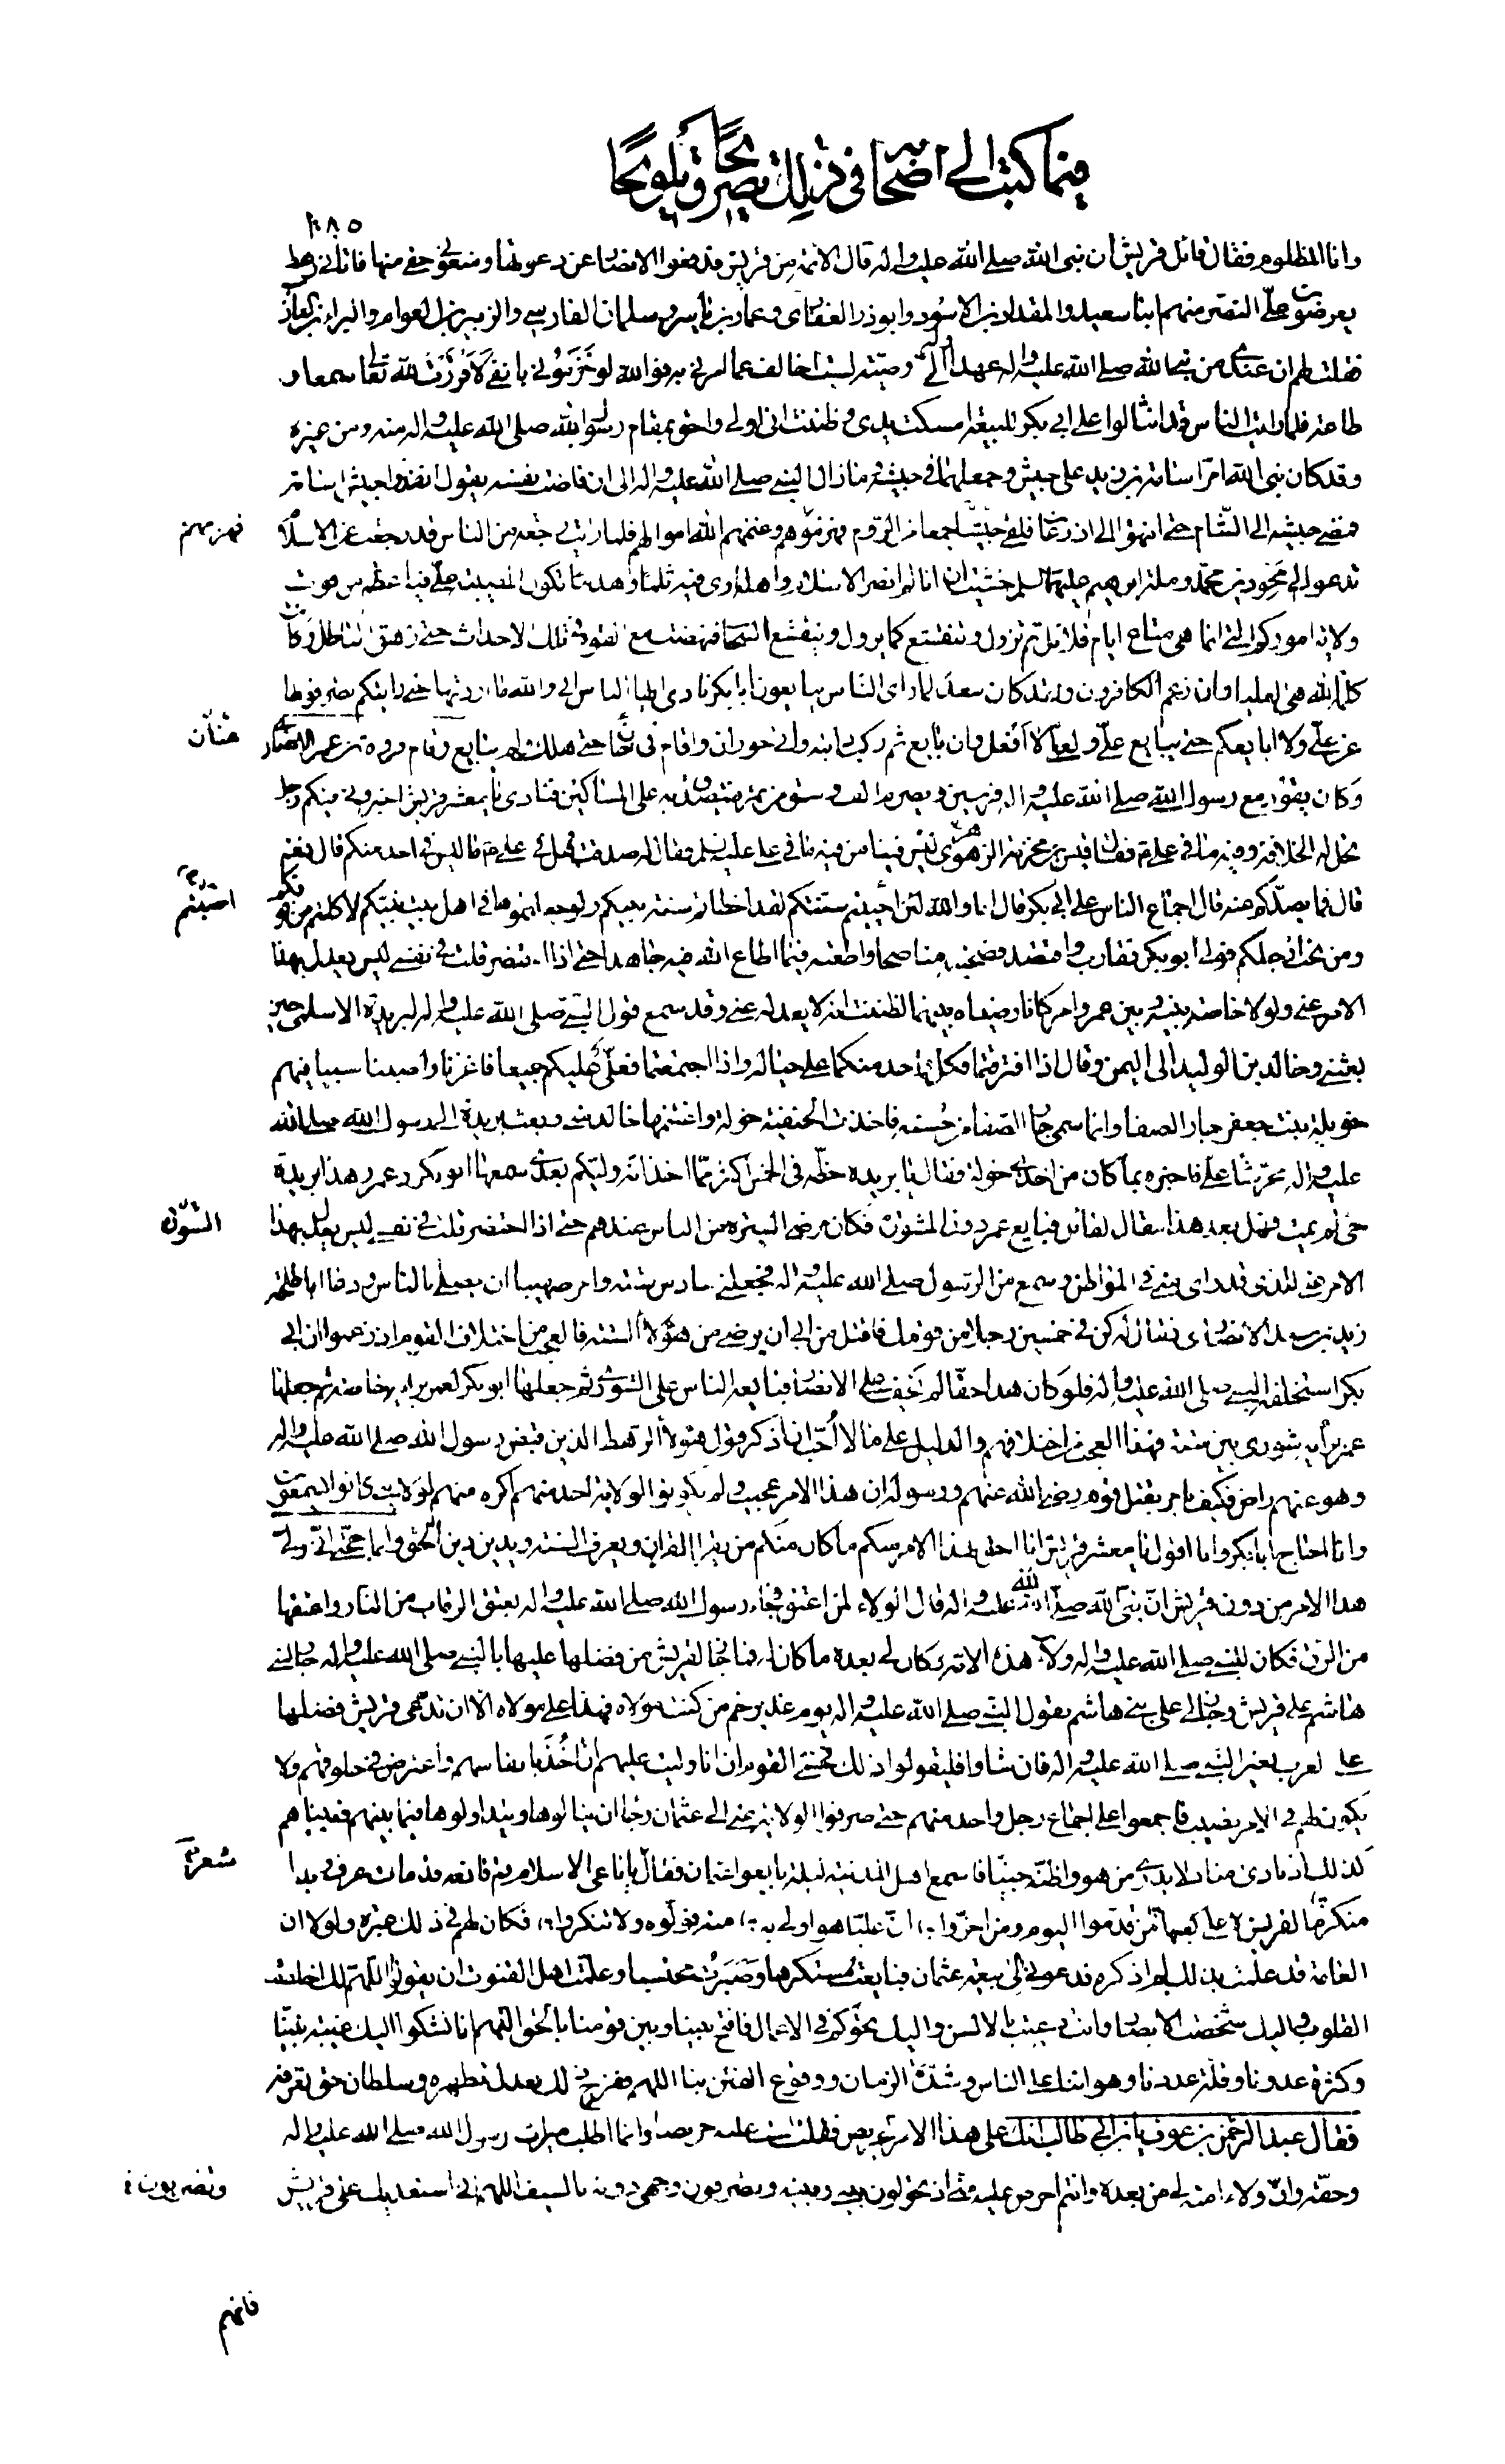 فيما كتب الى اصحابه في ذلك تصريحا وتلويحا
١٨٥
وانا المظلوم فقال قائل قريش ان نبى الله صلى الله عليه واله قال الائمة من قريش فدفعوا الانصار عن دعوتها ومنعونى حقى منها فاتانى رهط
يعرضون على النصر منهم ابنا سعيد والمقداد بن الاسود وابو ذر الغفارى وعمار بن ياسر وسلمان الفارسى والزبير بن العوام والبراء بن العازب
فقلت لهم ان عندى من نبى الله صلى الله عليه واله عهدا وله الى وصية لست اخالف عما امرنى به فوالله لو خزمونى بانفى لاقررت لله تعالى سمعا و
طاعة فلما رايت الناس قد انثالوا على ابى بكر للبيعة امسكت يدى وظننت انى اولى واحق بمقام رسول الله صلى الله عليه واله منه ومن غيره
وقد كان نبى الله امر اسامة بن زيد على جيش وجعلهما فى جيشه وما زال النبى صلى الله عليه واله الى ان فاضت نفسه يقول انفذوا جيش اسامة
فمضى جيشه الى الشام حتى انتهوا الى اذرعات فلقى جيشا جمعا من الروم فهزموهم وغنمهم الله اموالهم فلما رايت راجعة من الناس قد رجعت عن الاسلام
فهزمهم
تدعو الى محو دين محمد وملة ابرهيم عليهما السلم خشيت ان انا لم انصر الاسلام واهله ارى فيه ثلما وهدما تكون المصيبة على فيه اعظم من فوت
ولاية اموركم التى انما هى متاع ايام قلائل ثم تزول وتنقشع كما يزول وينقشع السحاب فنهضت مع القوم فى تلك الاحداث حتى زهق الباطل وكانت
كلمة الله هى العليا وان زعم الكافرون ولقد كان سعد لما راى الناس يبايعون ابا بكر نادى ايها الناس انى والله ما اردتها حتى رايتكم تصرفونها
عن على ولا ابايعكم حتى يبايع على ولعلى لا افعل وان بايع ثم ركب دابته واتى حوران واقام فى خان حتى هلك ولم يبايع وقام فروة بن عمر الانصارى
عنان
وكان يقود مع رسول الله صلى الله عليه واله فرسين ويصرم الف وسق من تمر فيتصدق به على المساكين فنادى يا معشر قريش اخبرونى هل فيكم رجل
تحل له الخلافة وفيه ما فى على ع فقال قيس بن مخرمة الزهرى ليس فينا من فيه ما فى على عليه السلم فقال له صدقت فهل فى على ع ما ليس فى احد منكم قال نعم
قال فما يصدكم عنه قال اجتماع الناس على ابى بكر قال اما والله لئن احييتم سنتكم لقد اخطاتم سنة نبيكم ولو جعلتموها فى اهل بيت نبيكم لاكلتم من فوقكم
اصبتم
ومن تحت ارجلكم فولى ابو بكر فقارب واقتصد فصحبته مناصحا واطعته فيما اطاع الله فيه جاهدا حتى اذا احتضر قلت فى نفسى ليس يعدل بهذا
الامر عنى ولولا خاصة بينه وبين عمر وامر كانا رضياه بينهما لظننت انه لا يعدله عنى وقد سمع قول النبى صلى الله عليه واله لبريدة الاسلمى حين
بعثنى وخالد بن الوليد الى اليمن وقال اذا افترقتما فكل واحد منكما على حياله واذا اجتمعتما فعلى عليكم جميعا فاغزنا واصبنا سبيا فيهم
خويلة بنت جعفر جار الصفا وانما سمى جار الصفا من حسنه فاخذت الحنفية خولة واغتنمها خالد منى وبعث بريدة الى رسول الله صلى الله
عليه واله محرشا على فاخبره بما كان من اخذى خولة فقال يا بريدة حظه فى الخمس اكثر مما اخذ انه وليكم بعدى سمعها ابو بكر وعمر وهذا بريدة
حى لم يمت فهل بعد هذا مقال لقائل فبايع عمر دون المشورة فكان مرضى السيرة من الناس عندهم حتى اذا احتضر قلت فى نفسى ليس يعدل بهذا
الشورى
الامر عنى للذى قد راى منى فى المواطن وسمع من الرسول صلى الله عليه واله فجعلنى سادس ستة وامر صهيبا ان يصلى بالناس ودعا ابا طلحة
زيد بن سعد الانصارى فقال له كن فى خمسين رجلا من قومك فاقتل من ابى ان يرضى من هؤلاء الستة فالعجب من اختلاف القوم اذ زعموا ان ابى
بكر استخلفه النبى صلى الله عليه واله فلو كان هذا حقا لم يخف على الانصار فبايعه الناس على الشورى ثم جعلها ابو بكر لعمر برايه خاصة ثم جعلها
عمر برايه شورى بين ستة فهذا العجب من اختلافهم والدليل على ما لا احب ان اذكر قول هؤلاء الرهط الذين قبض رسول الله صلى الله عليه واله
وهو عنهم راض فكيف يامر بقتل قوم رضى الله عنهم ورسوله ان هذا الامر عجيب ولم يكونوا لولاية احد منهم اكره منهم لولايتى كانوا يسمعون
وانا احتاج ابا بكر وانا اقول يا معشر قريش انا احق بهذا الامر منكم ما كان منكم من يقرا القران ويعرف السنة ويدين دين الحق وانما حجتى انى ولى
هذا الامر من دون قريش ان نبى الله صلى الله عليه واله قال الولاء لمن اعتق فجاء رسول الله صلى الله عليه واله بعتق الرقاب من النار واعتقها
من الرق فكان للنبى صلى الله عليه واله ولاء هذه الامة وكان لى بعده ما كان له فما جاز لقريش من فضلها عليها بالنبى صلى الله عليه واله جاز لبنى
هاشم على قريش وجاز لى على بنى هاشم بقول النبى صلى الله عليه واله يوم غدير خم من كنت مولاه فهذا على مولاه الا ان تدعى قريش فضلها
على العرب بغير النبى صلى الله عليه واله فان شاوا فليقولوا ذلك فخشى القوم ان انا وليت عليهم ان اخذ بانفاسهم واعترض فى حلوقهم ولا
يكون لهم فى الامر نصيب فاجمعوا على اجماع رجل واحد منهم حتى صرفوا الولاية عنى الى عثمان رجاء ان ينالوها ويتداولوها فيما بينهم فبيناهم
كذلك اذ نادى مناد لا يدرى من هو واظنه جنيا فاسمع اهل المدينة ليلة بايعوا عثمان فقال يا ناعى الاسلام قم فانعه قد مات عرف وبدا
شعر
منكر ما لقريش لا على كعبها من قدموا اليوم ومن اخروا ان عليا هو اولى به منه فولوه ولا تنكروا فكان لهم فى ذلك عبرة ولولا ان
العامة قد علمت بذلك لم اذكره فدعونى الى بيعة عثمان فبايعت مستكرها وصبرت محتسبا وعلمت اهل القنوت ان يقولوا اللهم لك اخلصت
القلوب واليك شخصت الابصار وانت دعيت بالالسن واليك تحوكم فى الاعمال فافتح بيننا وبين قومنا بالحق اللهم انا نشكوا اليك غيبة نبينا
وكثرة عدونا وقلة عددنا وهواننا على الناس وشدة الزمان ووقوع الفتن بنا اللهم ففرج ذلك بعدل تظهره وسلطان حق تعرفه
فقال عبد الرحمن بن عوف يا بن ابى طالب انك على هذا الامر لحريص فقلت لست عليه حريصا وانما اطلب ميراث رسول الله صلى الله عليه واله
وحقه وان ولاء امته لى من بعده وانتم احرص عليه منى اذ تحولون بينى وبينه وتصرفون وجهى دونه بالسيف اللهم انى استعديك على قريش
وتضربون
فانهم